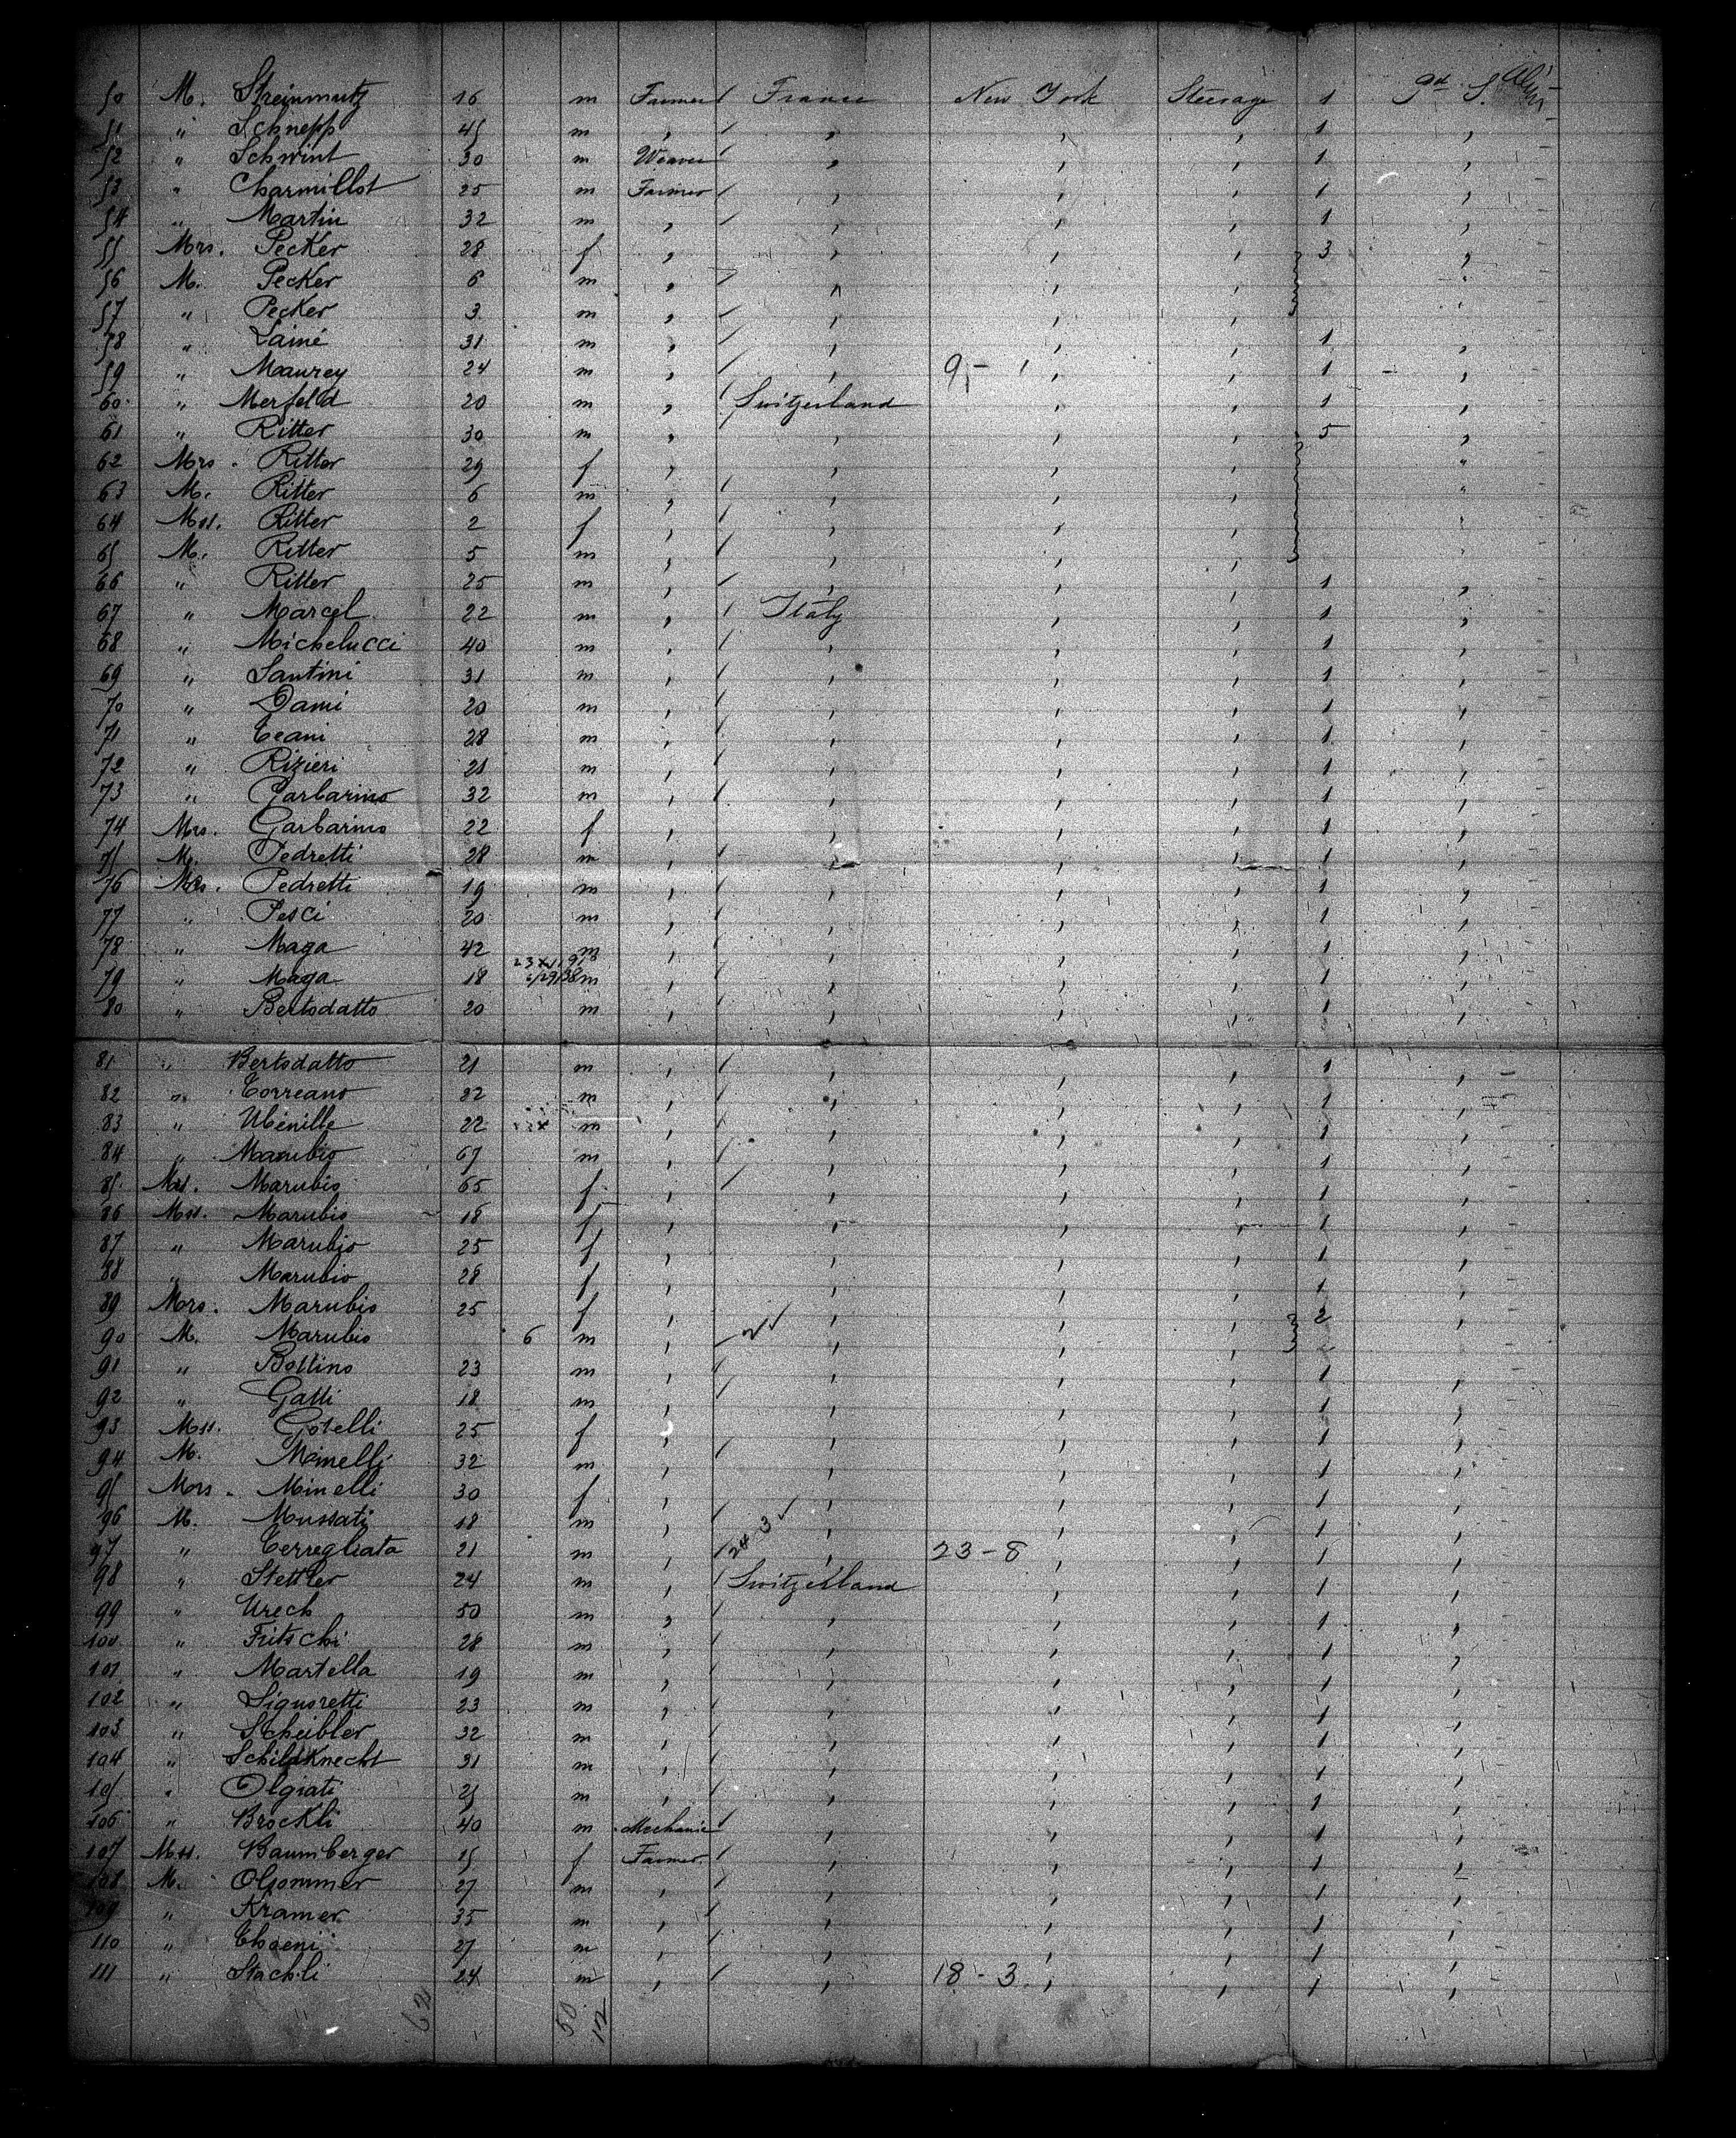 50 M. Steinmutz 16 m Farmer France New York Steerage 1
51 " Schnepp 45 m " " " " 1 "
52 " Schwint 30 m Weaver " " " 1 "
53 " Charmillot 25 m Farmer " " " 1 "
54 " Martin 32 m " " " " 1 "
55 Mrs. Pecker 28 f " " " " 3 "
56 M. Pecker 6 m " " " " "
57 " Pecker 3 m " " " " "
58 " Lainé 31 m " " " " 1 "
59 " Maurey 24 m " " 9 - 1 " " 1 "
60 " Merfeld 20 m " Switzerland " " 1 "
61 " Ritter 30 m " " " " 5 "
62 Mrs. Ritter 29 f " " " " "
63 M. Ritter 6 m " " " " "
64 Mss. Ritter 2 f " " " " "
65 M. Ritter 5 m " " " "
66 " Ritter 25 m " " " " 1 "
67 " Marcel 22 m " Italy " " 1 "
68 " Michelucci 40 m " " " " 1 "
69 " Santini 31 m " " " " 1 "
70 " Dami 20 m " " " " 1 "
71 " Ceani 28 m " " " " 1 "
72 " Rizieri 21 m " " " " 1 "
73 " Garbarino 32 m " " " " 1 "
74 Mrs. Garbarino 22 f " " " " 1 "
75 M. Pedretti 28 m " " " " 1 "
76 Mrs. Pedretti 19 m " " " " 1 "
77 " Pesci 20 m " " " " 1 "
78 " Maga 42 m " " " " 1 "
79 " Maga 18 m " " " " 1 "
80 " Bertodatto 20 m " " " " 1 "
81 " Bertodatto 21 m " " " " 1 "
82 " Correano 22 m " " " " 1 "
83 " Ubenille 22 m " " " " 1 "
84 " Marubio 67 m " " " " 1 "
85 Mrs. Marubio 65 f " " " " 1 "
86 Mss. Marubio 18 f " " " " 1 "
87 " Marubio 25 f " " " " 1 "
88 " Marubio 28 f " " " " 1 "
89 Mrs. Marubio 25 f " " " " 2 "
90 M. Marubio 6 m " " " " "
91 " Bottino 23 m " " " " 1 "
92 " Gatti 18 m " " " " 1 "
93 Mss. Gotelli 25 f " " " " 1 "
94 M. Minelli 32 m " " " " 1 "
95 Mrs. Minelli 30 f " " " " 1 "
96 M. Mussati 18 m " " " " 1 "
97 " Cerregliata 21 m " 24 3 " 23 - 8 " " 1 "
98 " Stettler 24 m " Switzerland " " 1 "
99 " Urech 50 m " " " " 1 "
100 " Fritschi 28 m " " " " 1 "
101 " Martella 19 m " " " " 1 "
102 " Signoretti 23 m " " " " 1 "
103 " Scheibler 32 m " " " " 1 "
104 " Schildknecht 31 m " " " " 1 "
105 " Olgiati 25 m " " " " 1 "
106 " Brockli 40 m Mechanic " " " 1 "
107 Mss. Baumberger 15 f Farmer " " " 1 "
108 M. Olsommer 27 m " " " " 1 "
109 " Kramer 35 m " " " " 1 "
110 " Choeni 27 m " " " " 1 "
111 " Stachli 24 m " " 18 - 3 " " 1 "
50
12